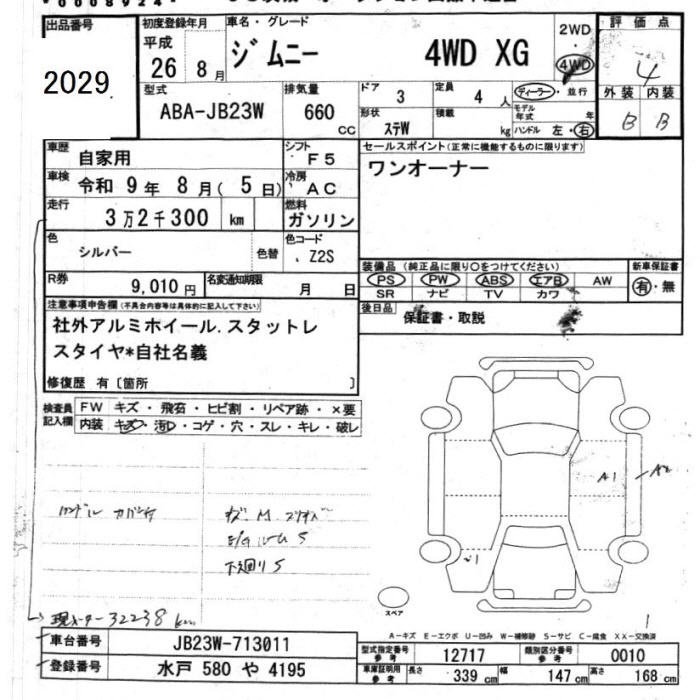 出品番号
2029
初度登録年月
平成
26 8月
車名・グレード
ジムニー 4WD XG
2WD
4WD
評価点
4
外装 内装
B B
型式
ABA-JB23W
排気量
660
CC
ドア 3
定員 4 人
ディーラー・並行
形状
ステW
積載 kg
モデル年式 年
ハンドル 左・右
車歴
自家用
シフト
F5
セールスポイント (正常に機能するものに限ります)
ワンオーナー
車検
令和 9年 8月( 5日)
冷房
AC
走行
3万2千300 km
燃料
ガソリン
色
シルバー
色替
色コード
Z2S
装備品 (純正品に限り○をつけてください)
PS PW ABS エアB AW
SR ナビ TV カワ
新車保証書
有・無
R券
9,010円
名変通知期限
月 日
後日品
保証書・取説
注意事項申告欄 (不具合内容等は具体的に記入して下さい)
社外アルミホイール.スタットレ
スタイヤ*自社名義
修復歴 有〔箇所 〕
検査員記入欄
FW キズ・飛石・ヒビ割・リペア跡・×要
内装 キズ・汚れ・コゲ・穴・スレ・キレ・破レ
A1 A2
下廻りS
現メーター32238km
スペア
A-キズ E-エクボ U-凹み W-補修跡 S-サビ C-腐食 XX-交換済
車台番号
JB23W-713011
登録番号
水戸 580 や 4195
型式指定番号
参考
12717
類別区分番号
参考
0010
車庫証明用
参考
長さ 339 cm 幅 147 cm 高さ 168 cm